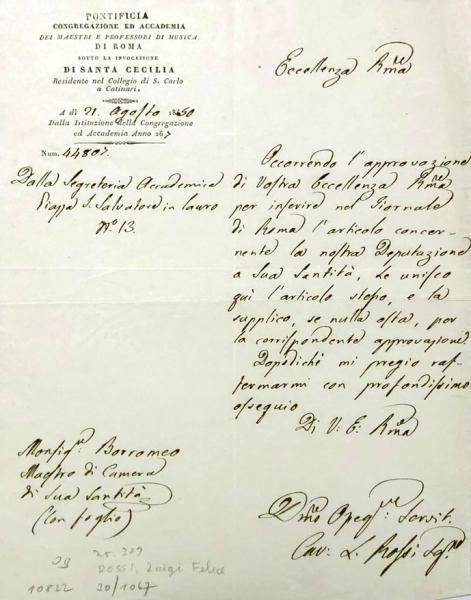 PONTIFICIA
CONGREGAZIONE ED ACCADEMIA
DEI MAESTRI E PROFESSORI DI MUSICA
DI ROMA
SOTTO LA INVOCAZIONE
DI SANTA CECILIA
Residente nel Collegio di S. Carlo
a Catinari.
A dì 21. Agosto 1850
Dalla Istituzione della Congregazione
ed Accademia Anno 267
Num. 4480.
Dalla Segreteria Accademica
Piazza S. Salvatore in lauro
N.º 13.
Eccellenza Rma
Occorrendo l'approvazione
di Vostra Eccellenza Rma
per inserire nel Giornale
di Roma l'articolo concer-
nente la nostra Deputazione
a Sua Santità, Le unisco
quì l'articolo stesso, e la
supplico, se nulla osta, per
la corrispondente approvazione.
Dopodiché mi pregio raf-
fermarmi con profondissimo
ossequio
Di V: E: Rma
Monsig.re Borromeo
Maestro di Camera
di Sua Santità
(con foglio)
Servit.
Cav: L. Rossi
nr. 329
ROSSI, Luigi Felice
10822 30/1067